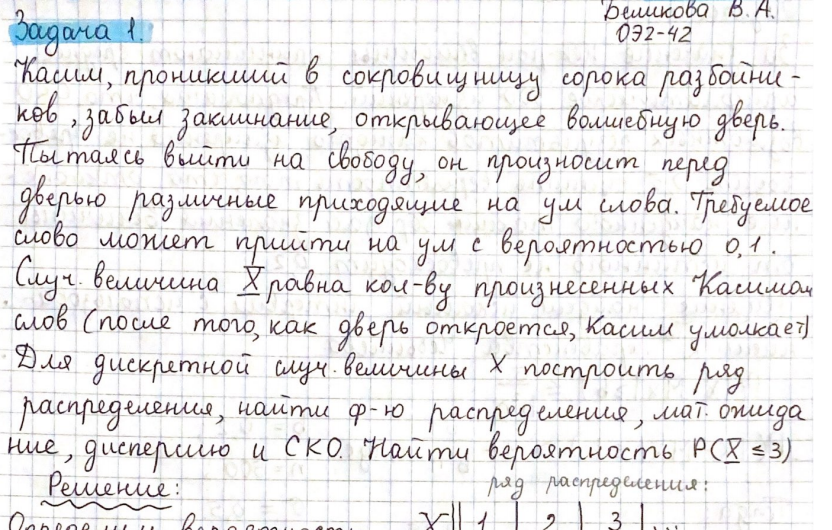 Беликова В. А.
Задача 1.
ОЭ2-42
Касим, проникший в сокровищницу сорока разбойни-
ков, забыл заклинание, открывающее волшебную дверь.
Пытаясь выйти на свободу, он произносит перед
дверью различные приходящие на ум слова. Требуемое
слово может прийти на ум с вероятностью 0,1.
Случ. величина X равна кол-ву произнесенных Касимом
слов (после того, как дверь откроется, Касим умолкает)
Для дискретной случ. величины X построить ряд
распределения, найти ф-ю распределения, мат. ожида
ние, дисперсию и СКО. Найти вероятность P(X ≤ 3)
Решение:
ряд распределения:
X || 1 | 2 | 3 | ...